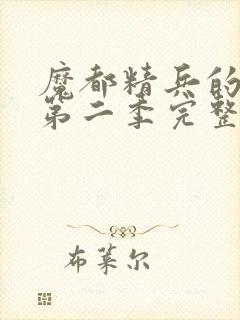 魔都精兵的
第二季完整
布莱尔